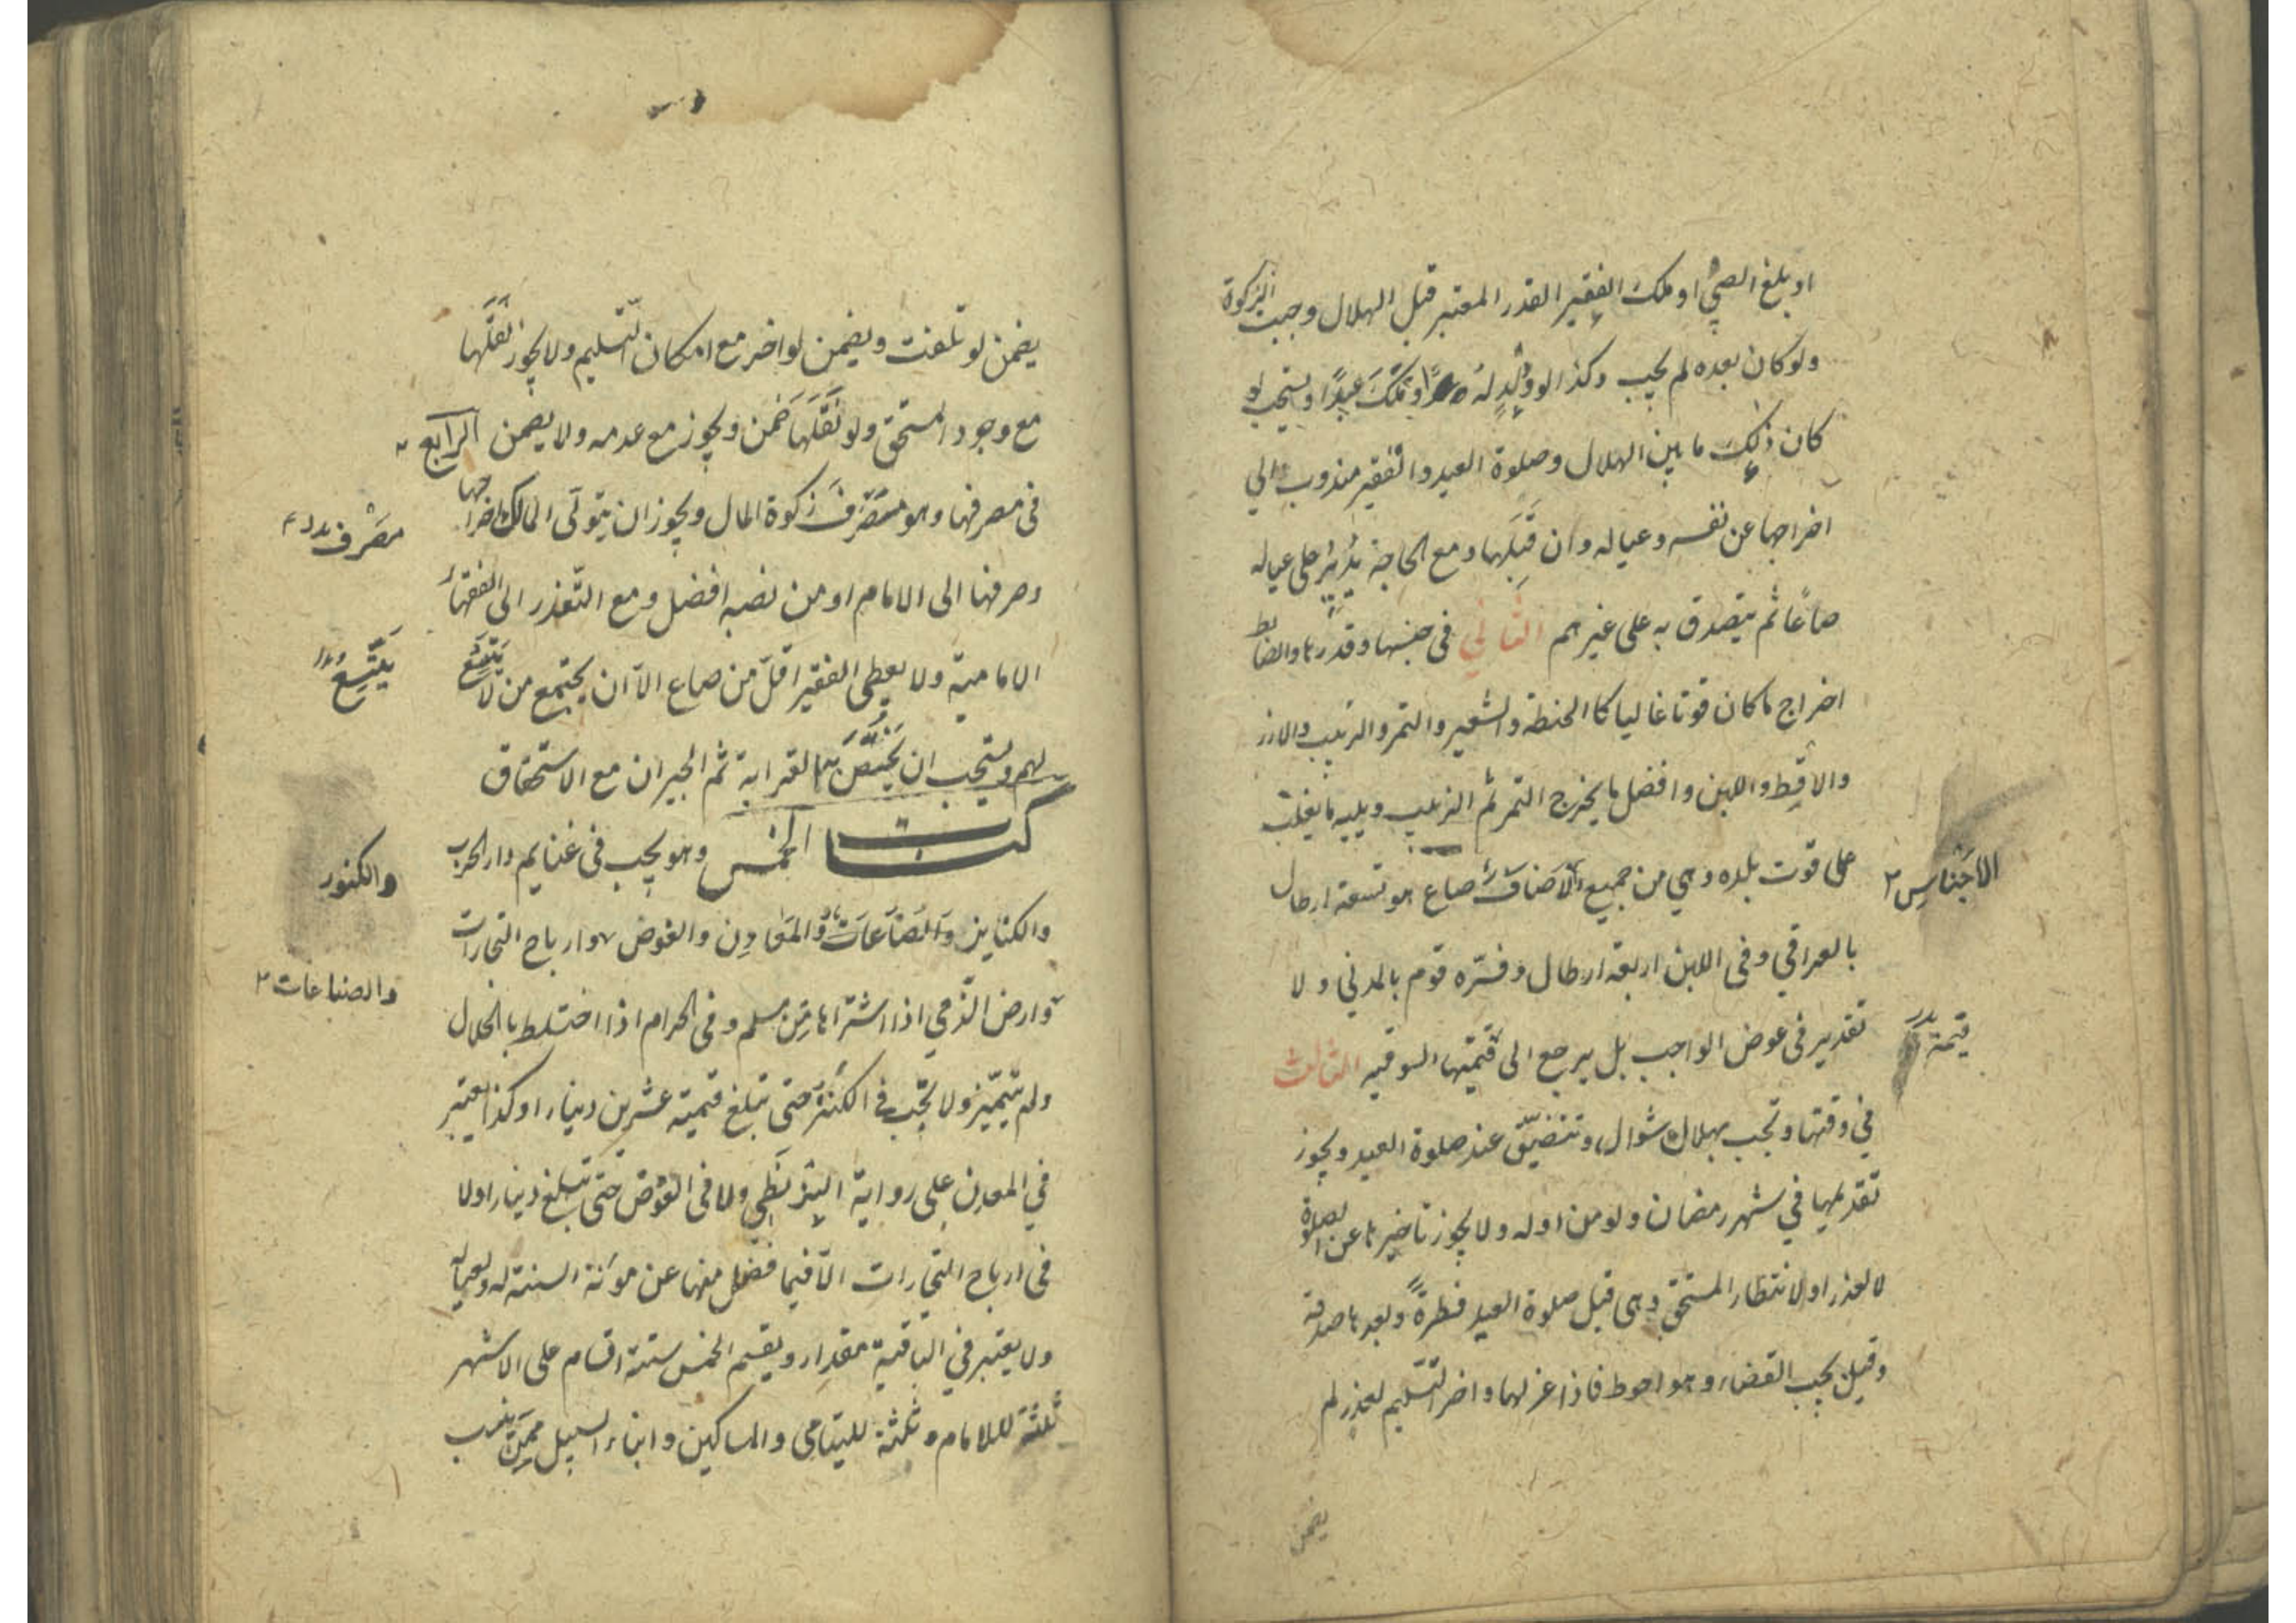 او بلغ الصبي او ملك الفقير القدر المعتبر قبل الهلال وجبت الزكوة
ولو كان بعده لم يجب وكذا لو ولد له او تملك عبدًا ويستحب لو
كان ذلك ما بين الهلال وصلوة العيد والفقير مندوب الى
اخراجها عن نفسه وعياله وان قبلها ومع الحاجة يدير على عياله
صاعًا ثم يتصدق به على غيرهم الثاني في جنسها وقدرها والضابط
اخراج ما كان قوتا غالبا كالحنطة والشعير والتمر والزبيب والارز
والاقط واللبن وافضل ما يخرج التمر ثم الزبيب ويليه ما يغلب
على قوت بلده وهي من جميع الاصناف صاع هو تسعة ارطال
الاجناس ٢
بالعراقي وفي اللبن اربعة ارطال وفسّره قوم بالمدني ولا
تقدير في عوض الواجب بل يرجع الى قيمتها السوقيه الثالث
قيمة
في وقتها وتجب بهلال شوال وتتضيّق عند صلوة العيد ويجوز
تقديمها في شهر رمضان ولو من اوله ولا يجوز تاخيرها عن الصلوة
لا لعذر او لانتظار المستحق وهي قبل صلوة العيد فطرةً وبعدها صدقة
وقيل يجب القضاء وهو احوط فاذا عزلها واخر التسليم لعذر لم
يضمن
يضمن لو تلفت ويضمن لو اخر مع امكان التسليم ولا يجوز نقلها
مع وجود المستحق ولو نقلها ضمن ويجوز مع عدمه ولا يضمن الرابع
في مصرفها وهو مصرف زكوة المال ويجوز ان يتولى المالك اخراجها
مصرف
وصرفها الى الامام او من نصبه افضل ومع التعذر الى الفقهاء
الامامية ولا يعطى الفقير اقل من صاع الا ان يجتمع من لا يتسع
يتسع
لهم ويستحب ان يختص بها القرابة ثم الجيران مع الاستحقاق
كتاب الخمس وهو يجب في غنايم دار الحرب
والكنوز
والكنايز والصناعات والمعادن والغوص وارباح التجارات
والصناعات ٢
وارض الذمي اذا اشتراها من مسلم وفي الحرام اذا اختلط بالحلال
ولم يتميز ولا تجب في الكنز حتى تبلغ قيمته عشرين دينارا وكذا يعتبر
في المعدن على رواية البزنطي ولا في الغوص حتى تبلغ دينارا ولا
في ارباح التجارات الا فيما فضل منها عن مؤنة السنة له ولعياله
ولا يعتبر في الباقية مقدار ويقسم الخمس ستة اقسام على الاشهر
ثلثة للامام وثلثة لليتامى والمساكين وابناء السبيل ممن ينسب